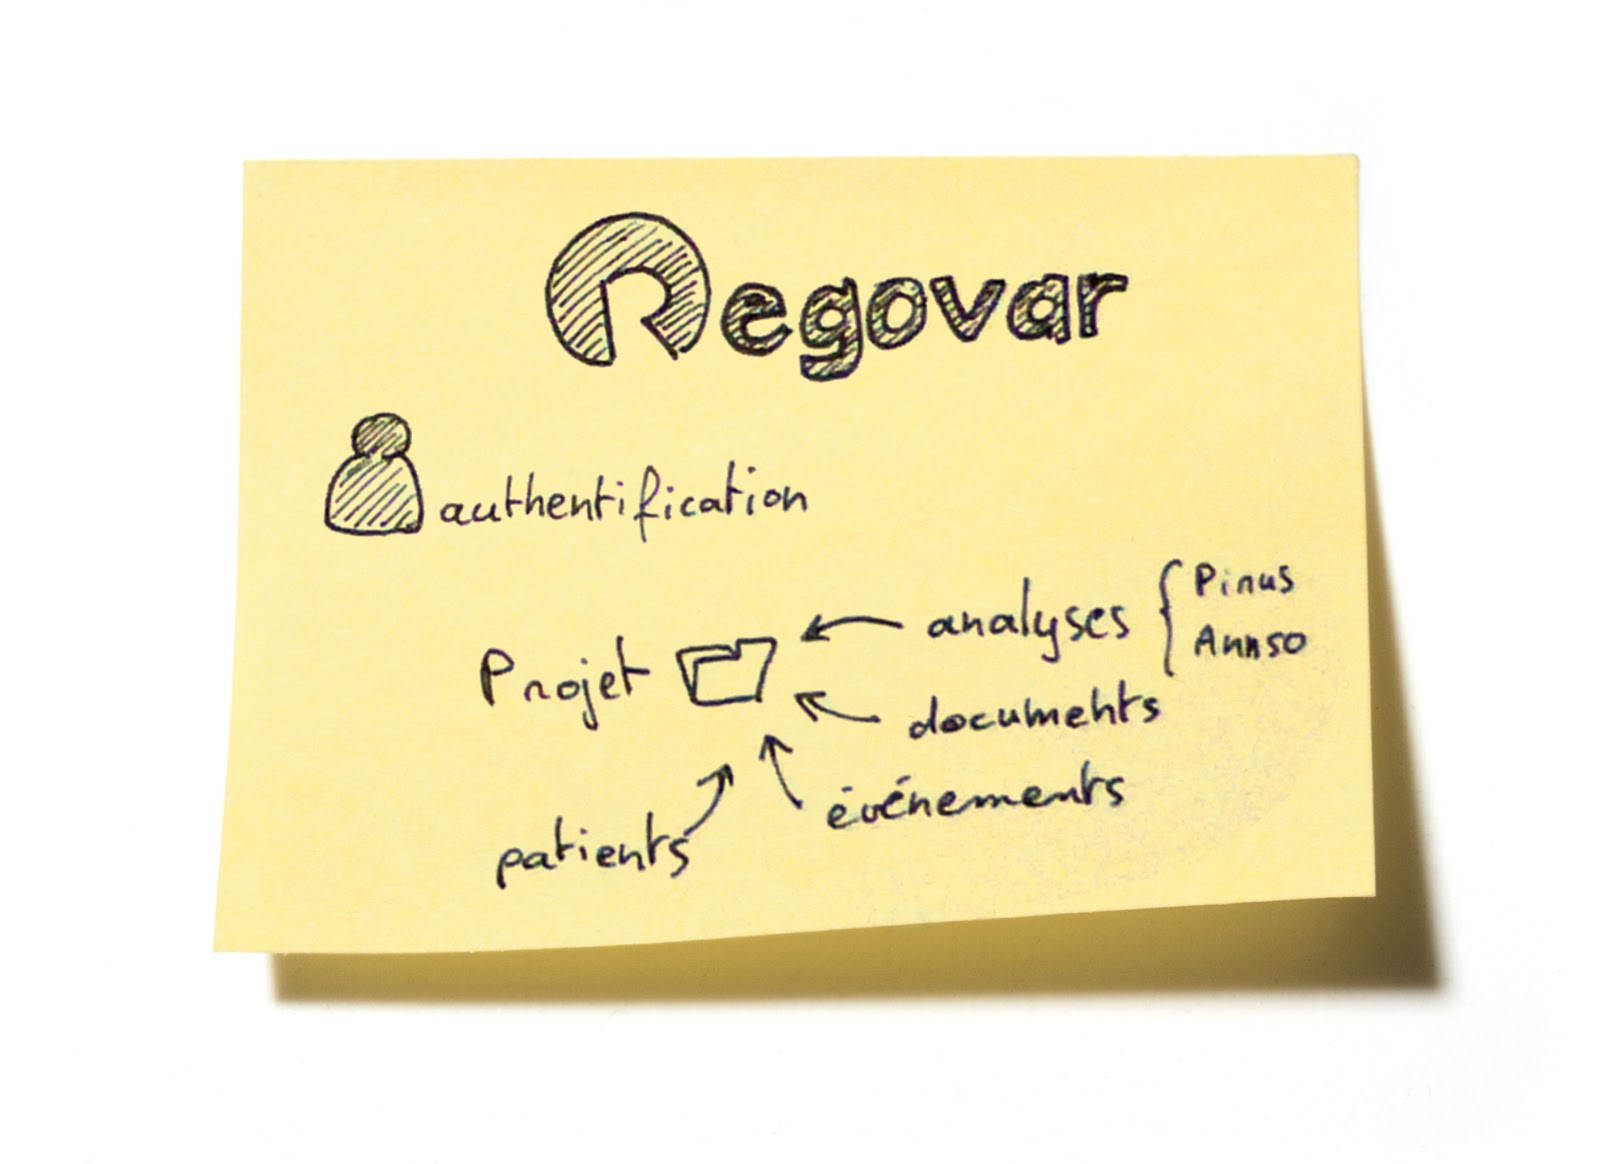 Regovar
authentification
Projet
analyses { Pinus
Annso
documents
événements
patients